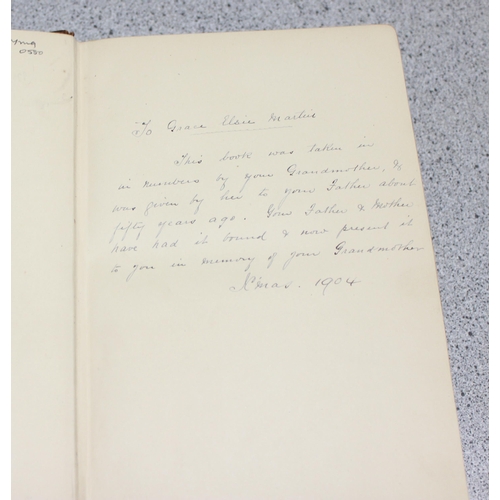 0580
To Grace Elsie Martin
This book was taken in
in numbers by your Grandmother, &
was given by her to your Father about
fifty years ago. Your Father & Mother
have had it bound & now present it
to you in memory of your Grandmother
X'mas. 1904